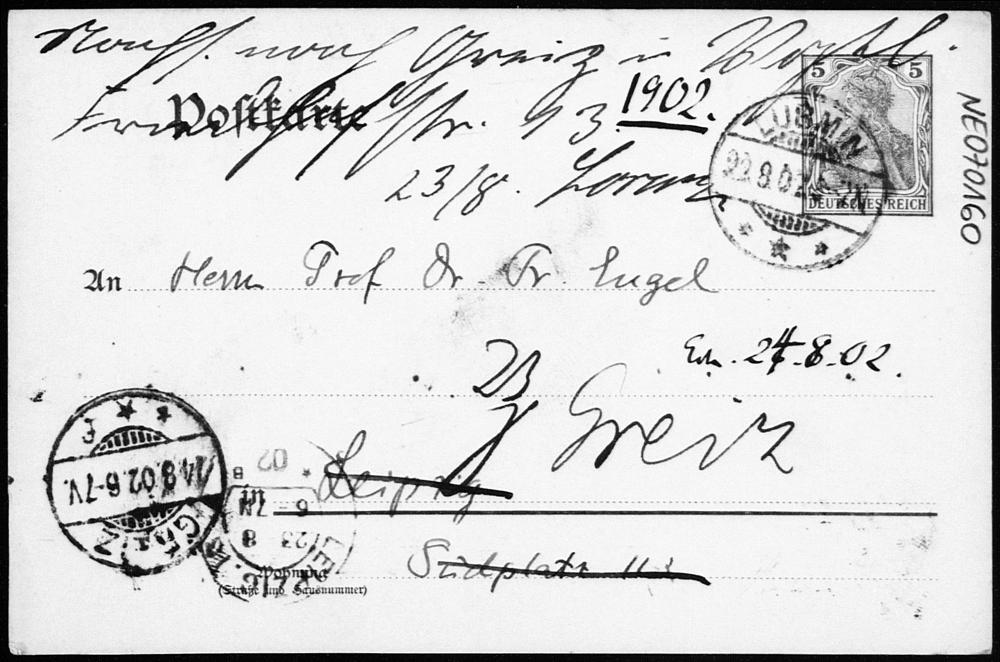 Nachs. nach Greiz i. Vogtl.
Postkarte
Str. 13.
1902.
23/8.
5 5
DEUTSCHES REICH
LUBMIN
22.8.02
NE070160
An Herrn Prof Dr. Fr. Engel
24.8.02.
Greiz
Leipzig
Südplatz 11
GREIZ
24.8.02.6-7V.
02
6-7N
23
8
Wohnung
(Straße und Hausnummer)